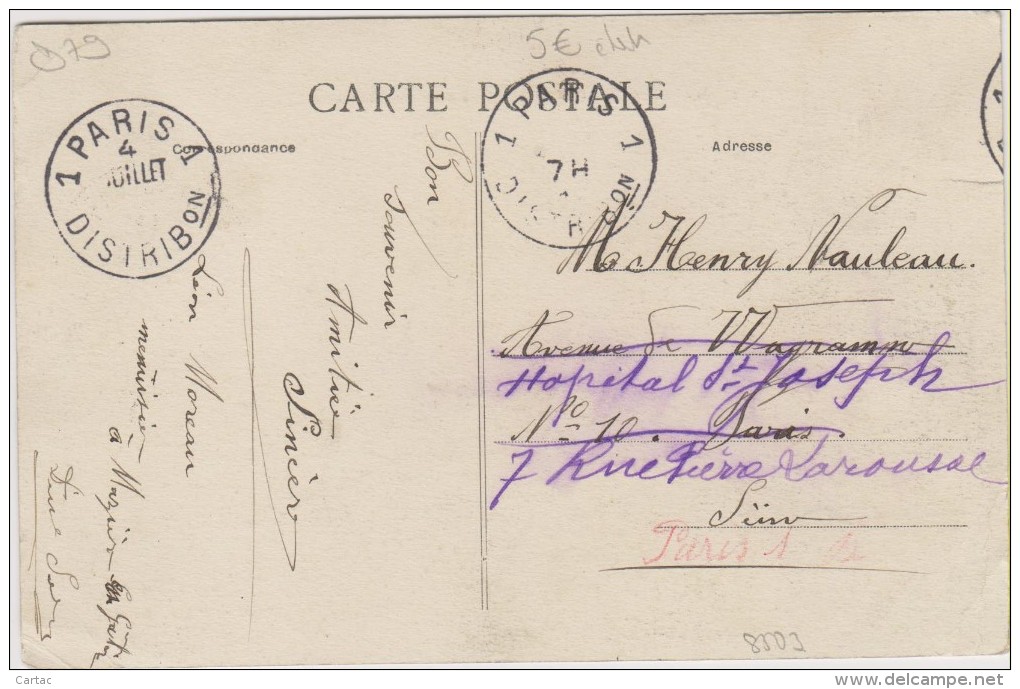 D79
5€
CARTE POSTALE
Correspondance
Adresse
1 PARIS 1
4
JUILLET
DISTRIBON
1 PARIS 1
7H
DISTRIBON
Bon
Souvenir
Amitié
Sinièr
Léon Moreau
menuisier
à Mazièr en Gâtin
Deux Sevr
M. Henry Nauleau.
Avenue de Wagramm
Hopital St Joseph
No 10. Paris.
7 Rue Pierre Larousse
Seine
Paris 14
Cartac
www.delcampe.net